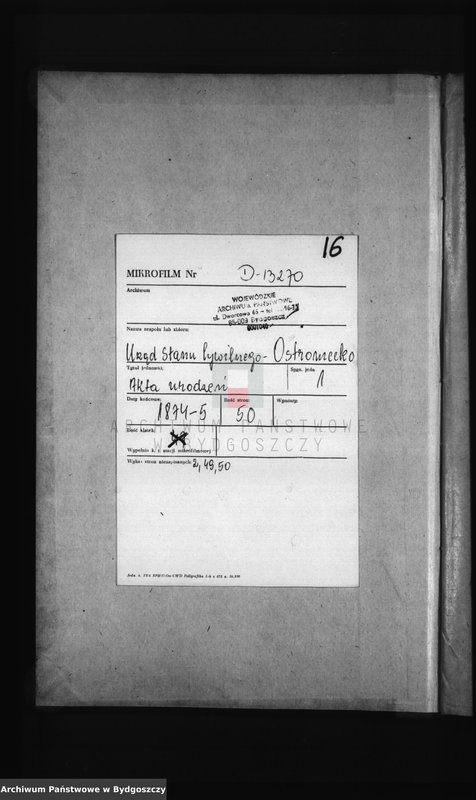 16
MIKROFILM Nr D-13270
Archiwum
WOJEWÓDZKIE
ARCHIWUM PAŃSTWOWE
ul. Dworcowa 65 - tel.
85-009 Bydgoszcz
Nazwa zespołu lub zbioru:
Urząd Stanu Cywilnego - Ostromecko
Tytuł jednostki: Sygn. jedn.
Akta urodzeń 1
Daty końcowe: Ilość stron: Wymiary:
1874-5 50
ARCHIWUM PAŃSTWOWE
W BYDGOSZCZY
Ilość klatek:
Wypełnia k. t. stacji mikrofilmowej
Wykaz stron niezapisanych: 2, 49, 50
Archiwum Państwowe w Bydgoszczy